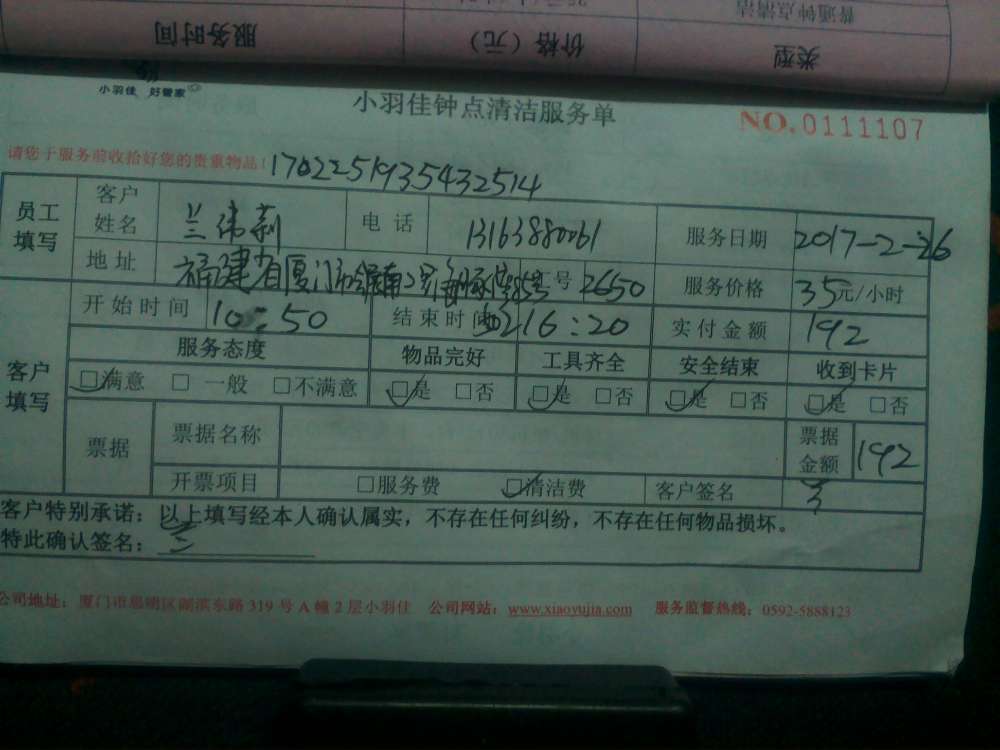 普通钟点清洁
类型 价格（元） 服务时间
小羽佳 好管家
小羽佳钟点清洁服务单
NO.0111107
请您于服务前收拾好您的贵重物品！1702251935432514
员工填写 客户姓名 兰伟莉 电话 13163880061 服务日期 2017-2-26
地址 福建省厦门市 号 2650 服务价格 35元/小时
客户填写 开始时间 10:50 结束时间 16:20 实付金额 192
服务态度 物品完好 工具齐全 安全结束 收到卡片
□满意 □一般 □不满意 □是 □否 □是 □否 □是 □否 □是 □否
票据 票据名称 票据金额 192
开票项目 □服务费 □清洁费 客户签名
客户特别承诺：以上填写经本人确认属实，不存在任何纠纷，不存在任何物品损坏。
特此确认签名：
公司地址：厦门市思明区湖滨东路319号A幢2层小羽佳 公司网站：www.xiaoyujia.com 服务监督热线：0592-5888123